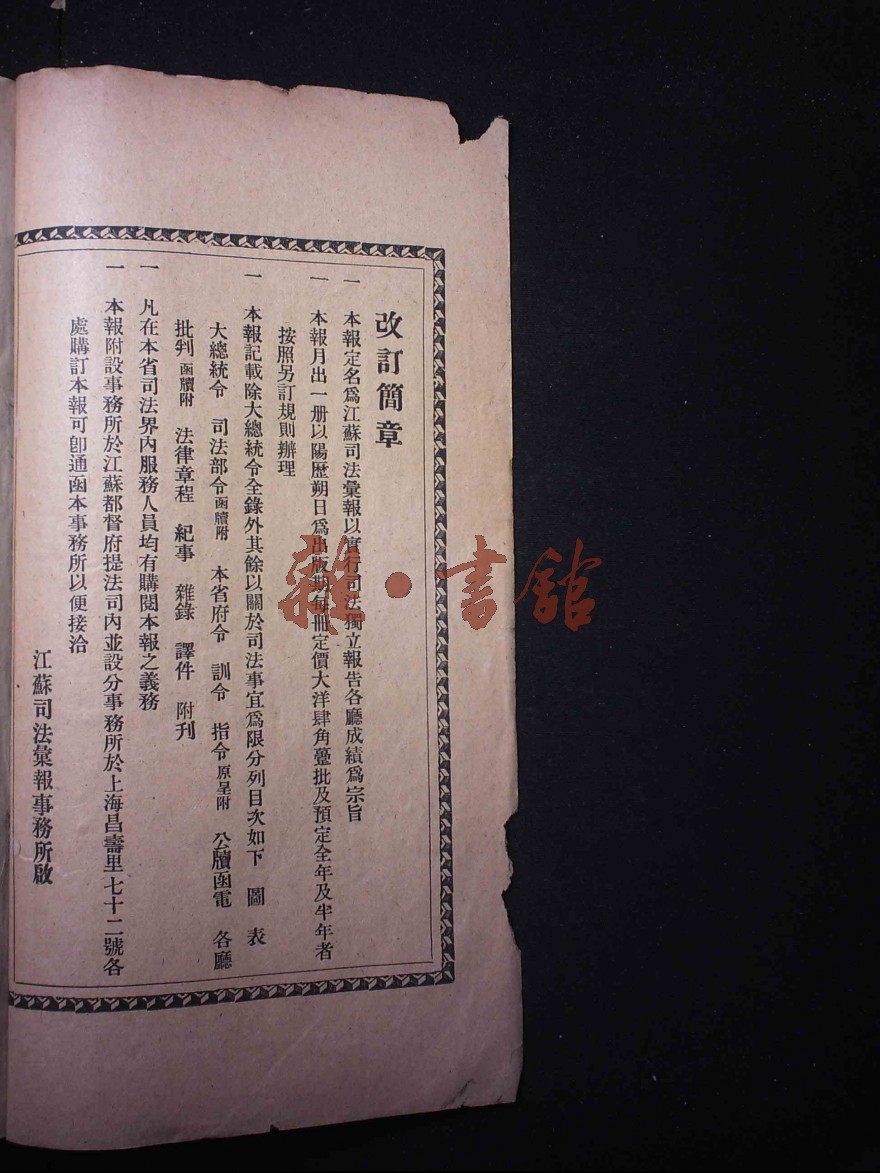 改訂簡章
一 本報定名爲江蘇司法彙報以實行司法獨立報告各廳成績爲宗旨
一 本報月出一册以陽歷朔日爲出版期每冊定價大洋肆角躉批及預定全年及半年者
按照另訂規則辦理
一 本報記載除大總統令全錄外其餘以關於司法事宜爲限分列目次如下 圖 表
大總統令 司法部令函牘附 本省府令 訓令 指令原呈附 公牘函電 各廳
批判函牘附 法律章程 紀事 雜錄 譯件 附刋
一 凡在本省司法界內服務人員均有購閱本報之義務
一 本報附設事務所於江蘇都督府提法司內並設分事務所於上海昌壽里七十二號各
處購訂本報可卽通函本事務所以便接洽
江蘇司法彙報事務所啟
雜·書館